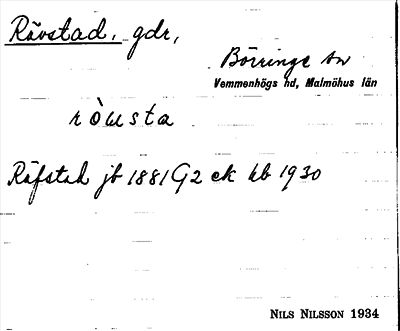 Rävstad, gdr,
Börringe sn
Vemmenhögs hd, Malmöhus län
ròusta
Räfstad jb 1881 G2 ek hb 1930
NILS NILSSON 1934